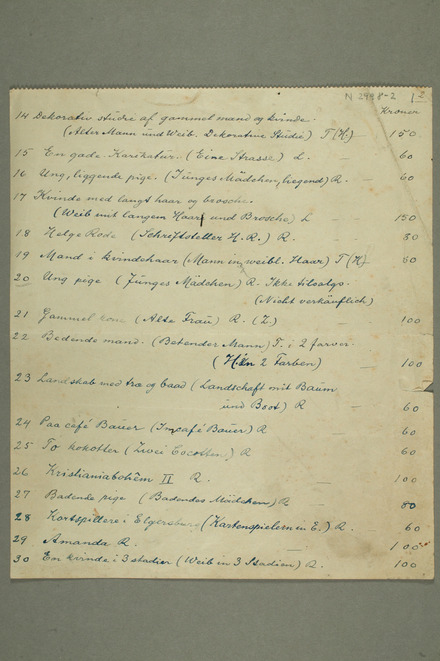 N 2948-2 12
Kroner
14 Dekorativ studie af gammel mand og kvinde.
(Alter Mann und Weib. Dekorative Studie) T(H.) — 150
15 En gade. Karikatur. (Eine Strasse) L. — 60
16 Ung, liggende pige. (Junges Mädchen, liegend) R. — 60
17 Kvinde med langt haar og brosche.
(Weib mit langem Haar und Brosche) L — 150
18 Helge Rode (Schriftsteller H. R.) R. — 80
19 Mand i kvindehaar (Mann in weibl. Haar) T(H) 60
20 Ung pige (Junges Mädchen) R. Ikke tilsalgs.
(Nicht verkäuflich)
21 Gammel kone (Alte Frau) R. (Z.) — 100
22 Bedende mand. (Betender Mann) T. i 2 farver.
(H. in 2 Farben) 100
23 Landskab med træ og baad (Landschaft mit Baum
und Boot) R — 60
24 Paa café Bauer (Im café Bauer) R 60
25 To kokotter (Zwei Cocotten) R 60
26 Kristianiabohêm II R. — 100
27 Badende pige (Badendes Mädchen) R 80
28 Kortspillere i Elgersburg (Kartenspielern in E.) R. 60
29 Amanda R. — 100
30 En kvinde i 3 stadier (Weib in 3 Stadien) R. 100